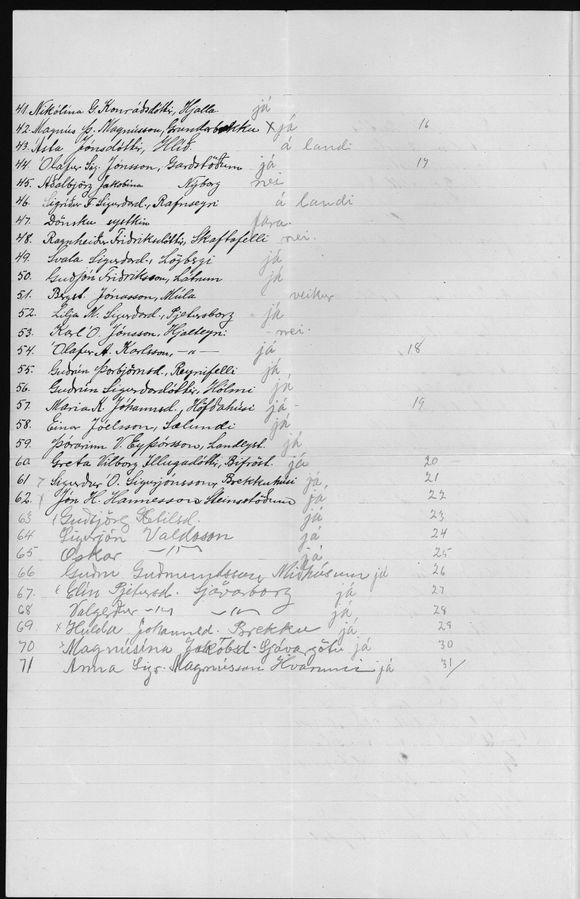 41. Nikólína G. Konráðsdóttir, Hjalla já
42. Magnús Þ. Magnússon, Grundarbrekku x já 16
43. Ásta Jónsdóttir, Hlíð. á landi
44. Ólafur Sig. Jónsson, Garðstöðum já 17
45. Aðalbjörg Jakobína Nýborg nei
46. Sigríður F. Sigurðard., Rafnseyri á landi
47. Dönsku systkin fara.
48. Ragnheiður Friðriksdóttir, Skaftafelli nei.
49. Svala Sigurðard., Lögbergi já
50. Guðjón Friðriksson, Látrum já
51. Bergst. Jónasson, Múla veikur
52. Lilja M. Sigurðard., Pjetursborg já
53. Karl O. Jónsson, Hjalteyri nei.
54. Ólafur A. Karlsson, -"- já 18
55. Guðrún Þorbjörnsd., Reynifelli já
56. Guðrún Sigurðardóttir, Hólmi já
57. María K. Jóhannsd., Höfðahúsi já - 19
58. Einar Jóelsson, Sælundi já
59. Þórarinn V. Eyþórsson, Landlyst. já
60. Greta Vilborg Illugadóttir, Bifröst. já 20
61. Sigurður O. Sigurjónsson, Brekkuhúsi já, 21
62. Jón H. Hannesson Steinsstöðum já 22
63 Guðbjörg Ketilsd. já 23
64 Sigurjón Valdason já 24
65 Óskar -"- já 25
66 Guðm Guðmundsson, Miðhúsum já 26
67. Elín Pjetursd. Sjávarborg já 27
68 Valgerður -"- -"- já 28
69 x Hulda Jóhannsd. Brekku já 29
70 Magnúsína Jakobsd. Sjávargötu já 30
71 Anna Sigr. Magnússon Hvammi já 31/